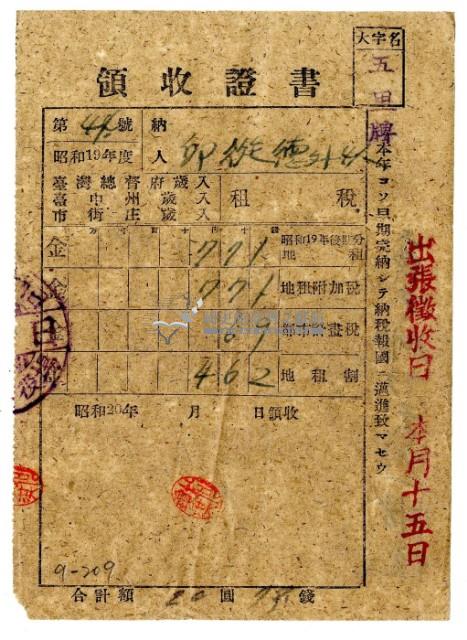 領收證書
大字名
五甲
第 號
昭和19年度
納
人
臺灣總督府歲入
臺中州歲入
市街庄歲入
租稅
金 771 昭和19年後期分地租
金 771 地租附加稅
金 69
金 462 地租割
昭和20年 月 日領收
合計額 20圓 錢
9-209
本年コソ早期完納シテ納稅報國ニ邁進致マセウ
出張徵收日 本月十五日